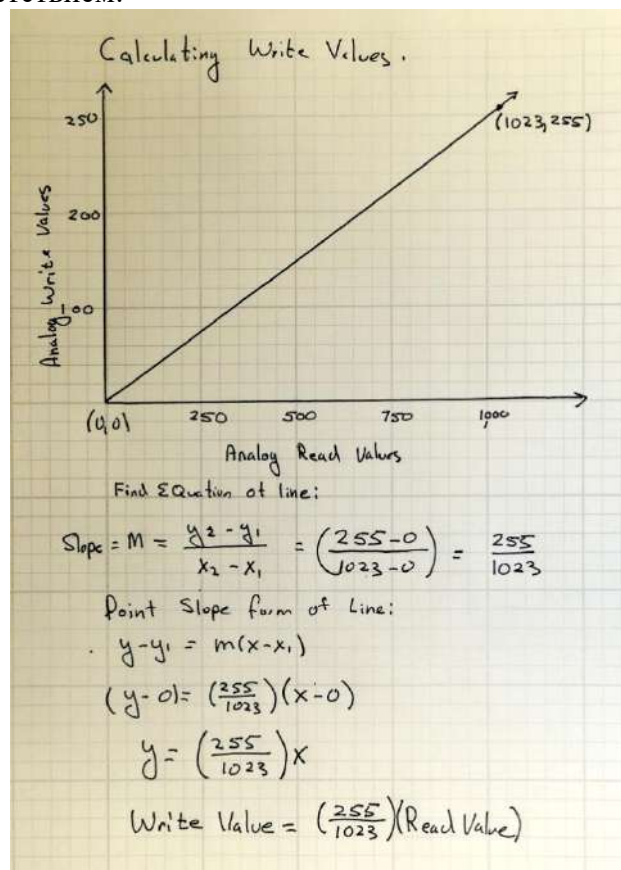 Calculating Write Values.
250
(1023,255)
200
100
Analog Write Values
(0,0) 250 500 750 1,000
Analog Read Values
Find EQuation of line:
Slope = M = (y2 - y1)/(x2 - x1) = ((255-0)/(1023-0)) = 255/1023
Point Slope form of Line:
y-y1 = m(x-x1)
(y-0)= (255/1023)(x-0)
y= (255/1023)x
Write Value = (255/1023)(Read Value)